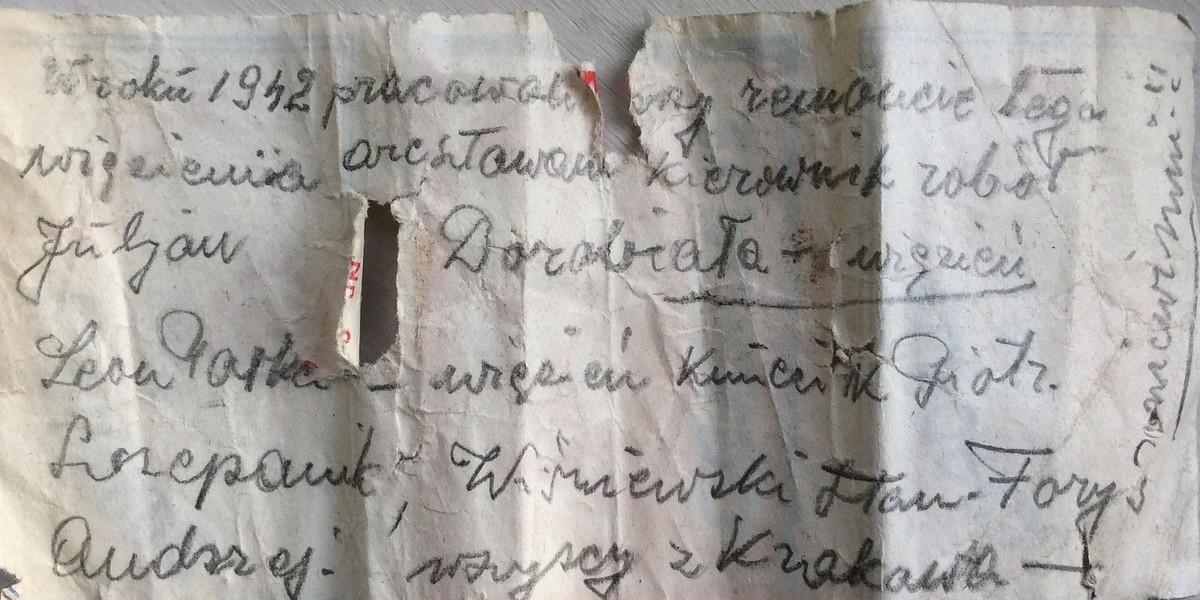 W roku 1942 pracowali przy remoncie tego
więzienia aresztowani kierownik robót
Juljan Dorobiała - więzień
Leon - więzień Piotr.
Szczepanik, Wiśniewski Stan. Foryś
Andrzej. wszyscy z Krakowa —